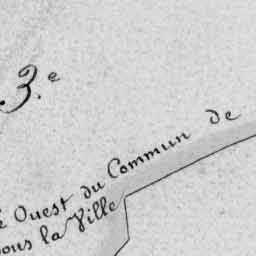 3.e
Ouest du Commun de
la Ville